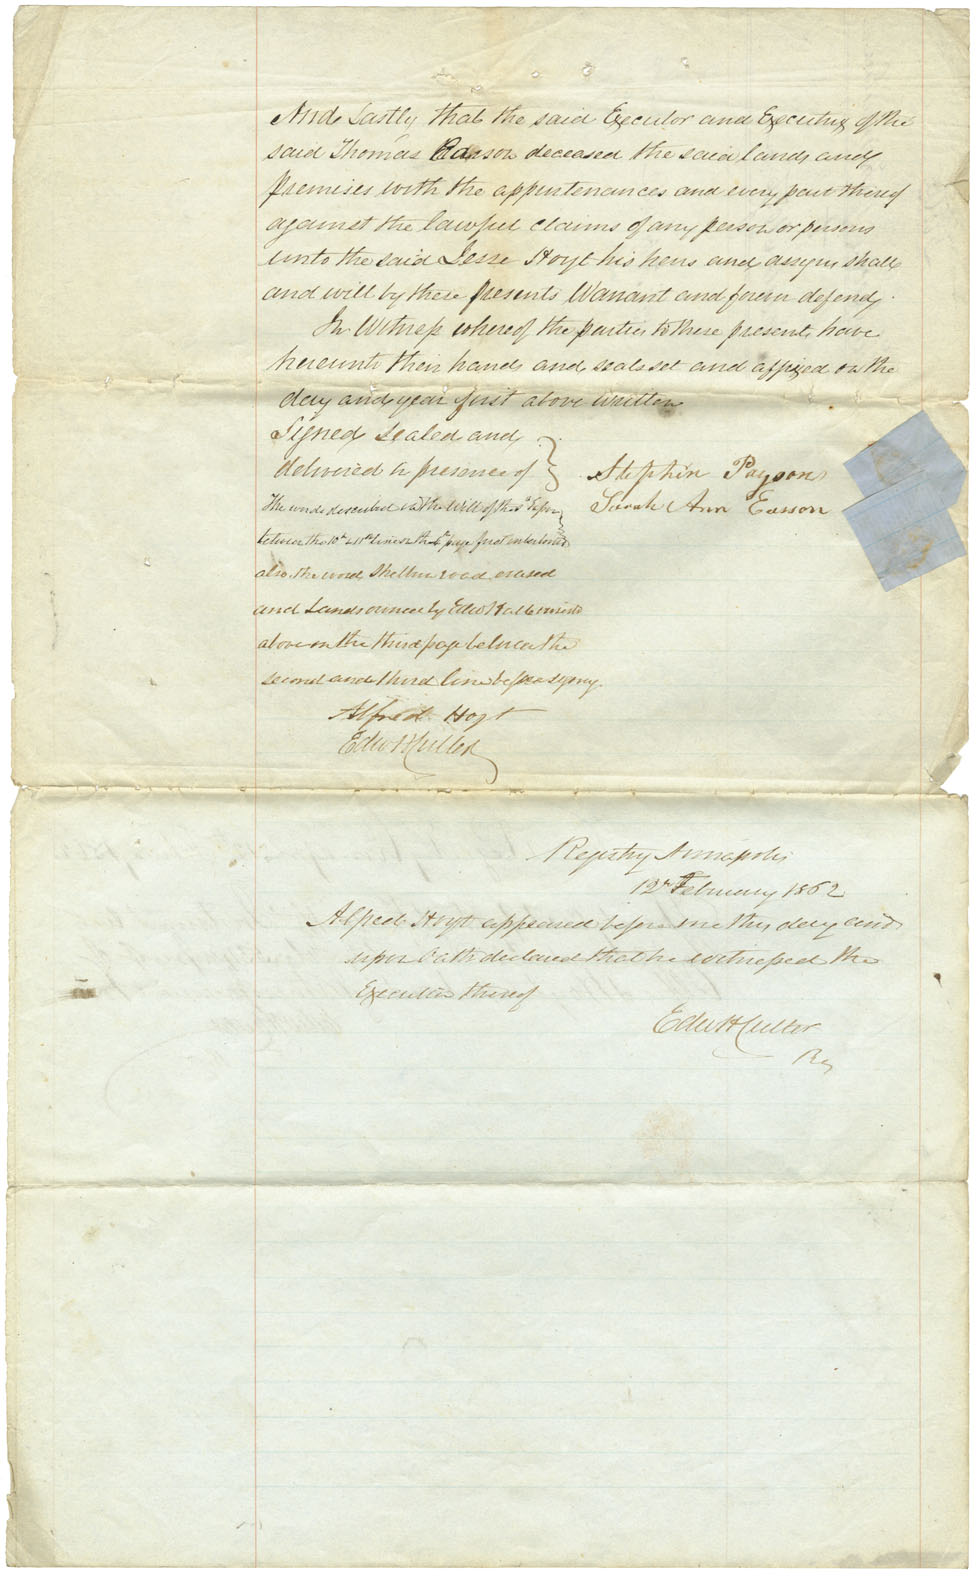 And Lastly that the said Executor and Executrix of the
said Thomas Easson deceased the said lands and
Premises with the appurtenances and every part thereof
against the lawful claims of any person or persons
unto the said Jesse Hoyt his heirs and assigns shall
and will by these Presents Warrant and forever defend.
In Witness whereof the parties to these presents have
hereunto their hands and seals set and affixed on the
day and year first above written
Signed Sealed and
delivered in presence of
Stephen Payson
Sarah Ann Easson
The words described in the Will of the
between the 10th & 11th lines on the page first interlined
also the word road erased
and Lands owned by Edw H
above on the third page between the
second and third line before signing.
Alfred Hoyt
Edw H Cutler
Registry Annapolis
12th February 1862
Alfred Hoyt appeared before me this day and
upon Oath declared that he witnessed the
Execution thereof
Edw H Cutler
Reg